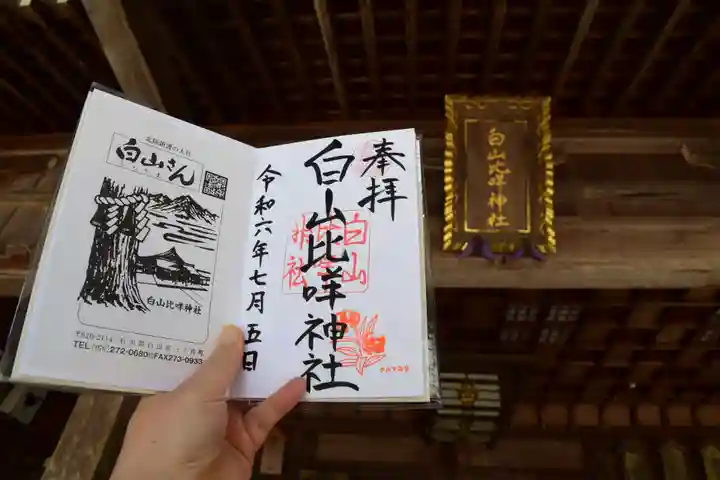 北陸鎮護の大社
白山さん
白山比咩神社
〒920-2114 石川県白山市三宮町
TEL(076)272-0680㈹FAX273-0933
奉拝
白山比咩神社
令和六年七月五日
白山比咩神社
白山比咩神社